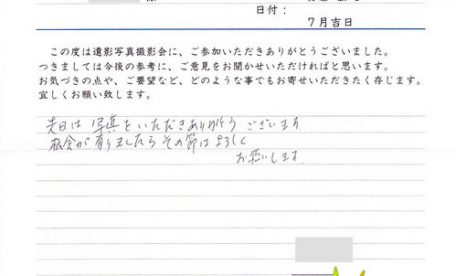 様
日付：
７月吉日
この度は遺影写真撮影会に、ご参加いただきありがとうございました。
つきましては今後の参考に、ご意見をお聞かせいただければと思います。
お気づきの点や、ご要望など、どのような事でもお寄せいただきたく存じます。
宜しくお願い致します。
先日は写真をいただきありがとうございます
機会が有りましたらその節はよろしく
お願いします